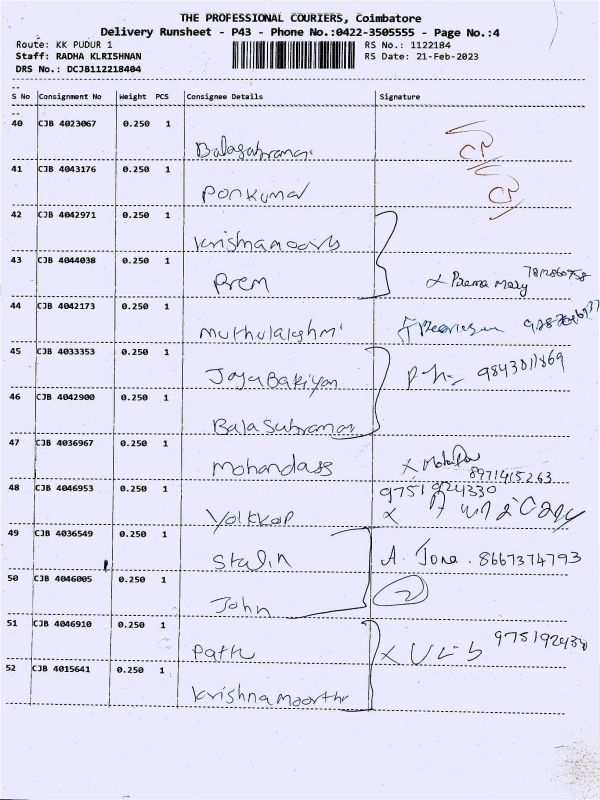 THE PROFESSIONAL COURIERS, Coimbatore
Delivery Runsheet - P43 - Phone No.:0422-3505555 - Page No.:4
Route: KK PUDUR 1 RS No.: 1122184
Staff: RADHA KLRISHNAN RS Date: 21-Feb-2023
DRS No.: DCJB112218404
S No Consignment No Weight PCS Consignee Details Signature
40 CJB 4023067 0.250 1
Balasubramani
41 CJB 4043176 0.250 1
Ponkumar
42 CJB 4042971 0.250 1
Krishnamoorthy
43 CJB 4044038 0.250 1
Prem Prema Mary
44 CJB 4042173 0.250 1
muthulakshmi
45 CJB 4033353 0.250 1
JayaBakiyam 9843011869
46 CJB 4042900 0.250 1
BalaSubramani
47 CJB 4036967 0.250 1
mohandass 8971415263
48 CJB 4046953 0.250 1 9751924330
49 CJB 4036549 0.250 1
Stalin A. Jona. 8667374793
50 CJB 4046005 0.250 1
John 2
51 CJB 4046910 0.250 1
52 CJB 4015641 0.250 1
Krishnamoorthi